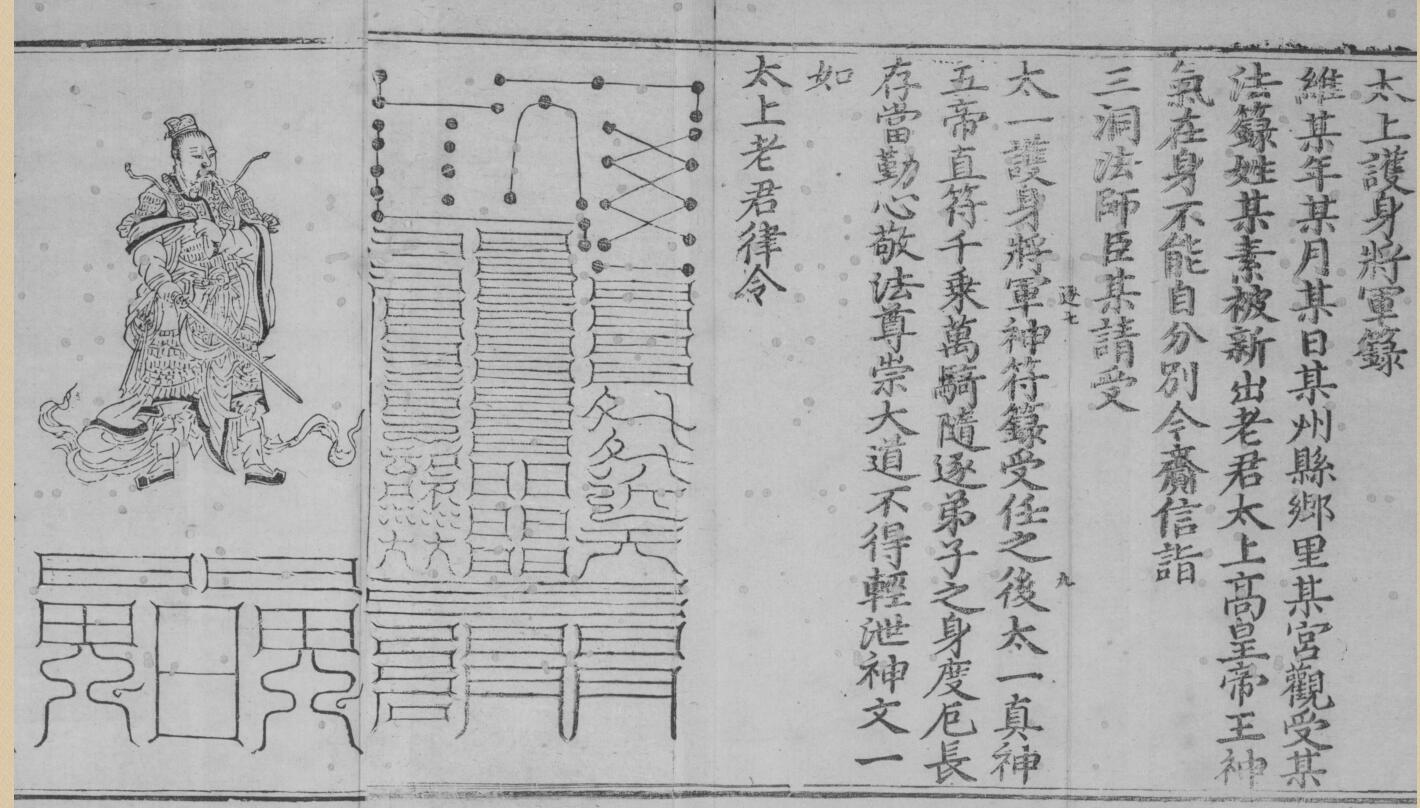 太上護身將軍籙
維某年某月某日某州縣鄉里某宮觀受某
法籙姓某素被新出老君太上高皇帝王神
氣在身不能自分別今齎信詣
三洞法師臣某請受
太一護身將軍神符籙受任之後太一真神
五帝直符千乗萬騎隨逐弟子之身度厄長
存當勤心敬法尊崇大道不得輕泄神文一
如
太上老君律令